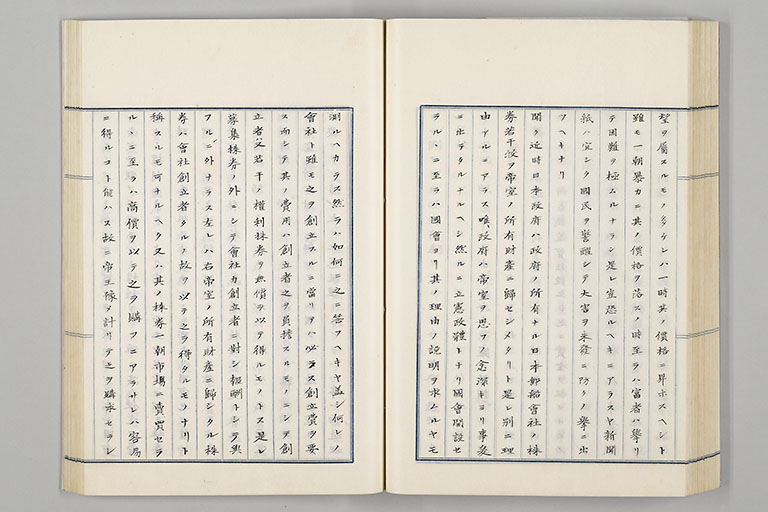 望ヲ屬スルモノ多ケレハ一時其ノ價格ニ昇ホスヘシト
雖モ一朝暴カニ其ノ價格ヲ落スノ時至ラハ富者ハ擧リ
テ困難ヲ極ムルナラン是レ豈恐ルヘキニアラスヤ新聞
紙ハ宜シク國民ヲ警醒シテ大害ヲ未發ニ防クノ擧ニ出
ツヘキナリ
聞ク近時日本政府ハ政府ノ所有ナル日本郵船會社ノ株
券若干枚ヲ帝室ノ所有財産ニ歸セシメタリト是レ別ニ理
由アルニアラス唯政府ハ帝室ヲ思フノ念深キヨリ事爰
ニ出テタルナルヘシ然ルニ立憲政體トナリ國會開設セ
ラルヽニ至ラハ國會ヨリ其ノ理由ノ説明ヲ求ムルヤモ
測ルヘカラス然ラハ如何ニ之ニ答フヘキヤ蓋シ何レノ
會社ト雖モ之ヲ創立スルニ當リテハ必ラス創立費ヲ要
ス而シテ其ノ費用ハ創立者之ヲ負擔スルモノニシテ創
立者ハ又若干ノ權利株券ヲ無償ニテ以テ得ルモノトス是レ
募集株券ノ外ニシテ會社カ創立者ニ對シ報酬トシテ與
フルニ外ナラス左レハ右帝室ノ所有財産ニ歸シタル株
券ハ會社創立者タルノ故ヲ以テ之ヲ得タルモノナリト
稱スルモ可ナルヘク又ハ其ノ株券一朝市場ニ賣買セラ
ルヽニ至ラハ高價ヲ以テ之ヲ購フニアラサレハ容易
ニ得ルコト能ハス故ニ帝王豫メ計リテ之ヲ購求セラレ